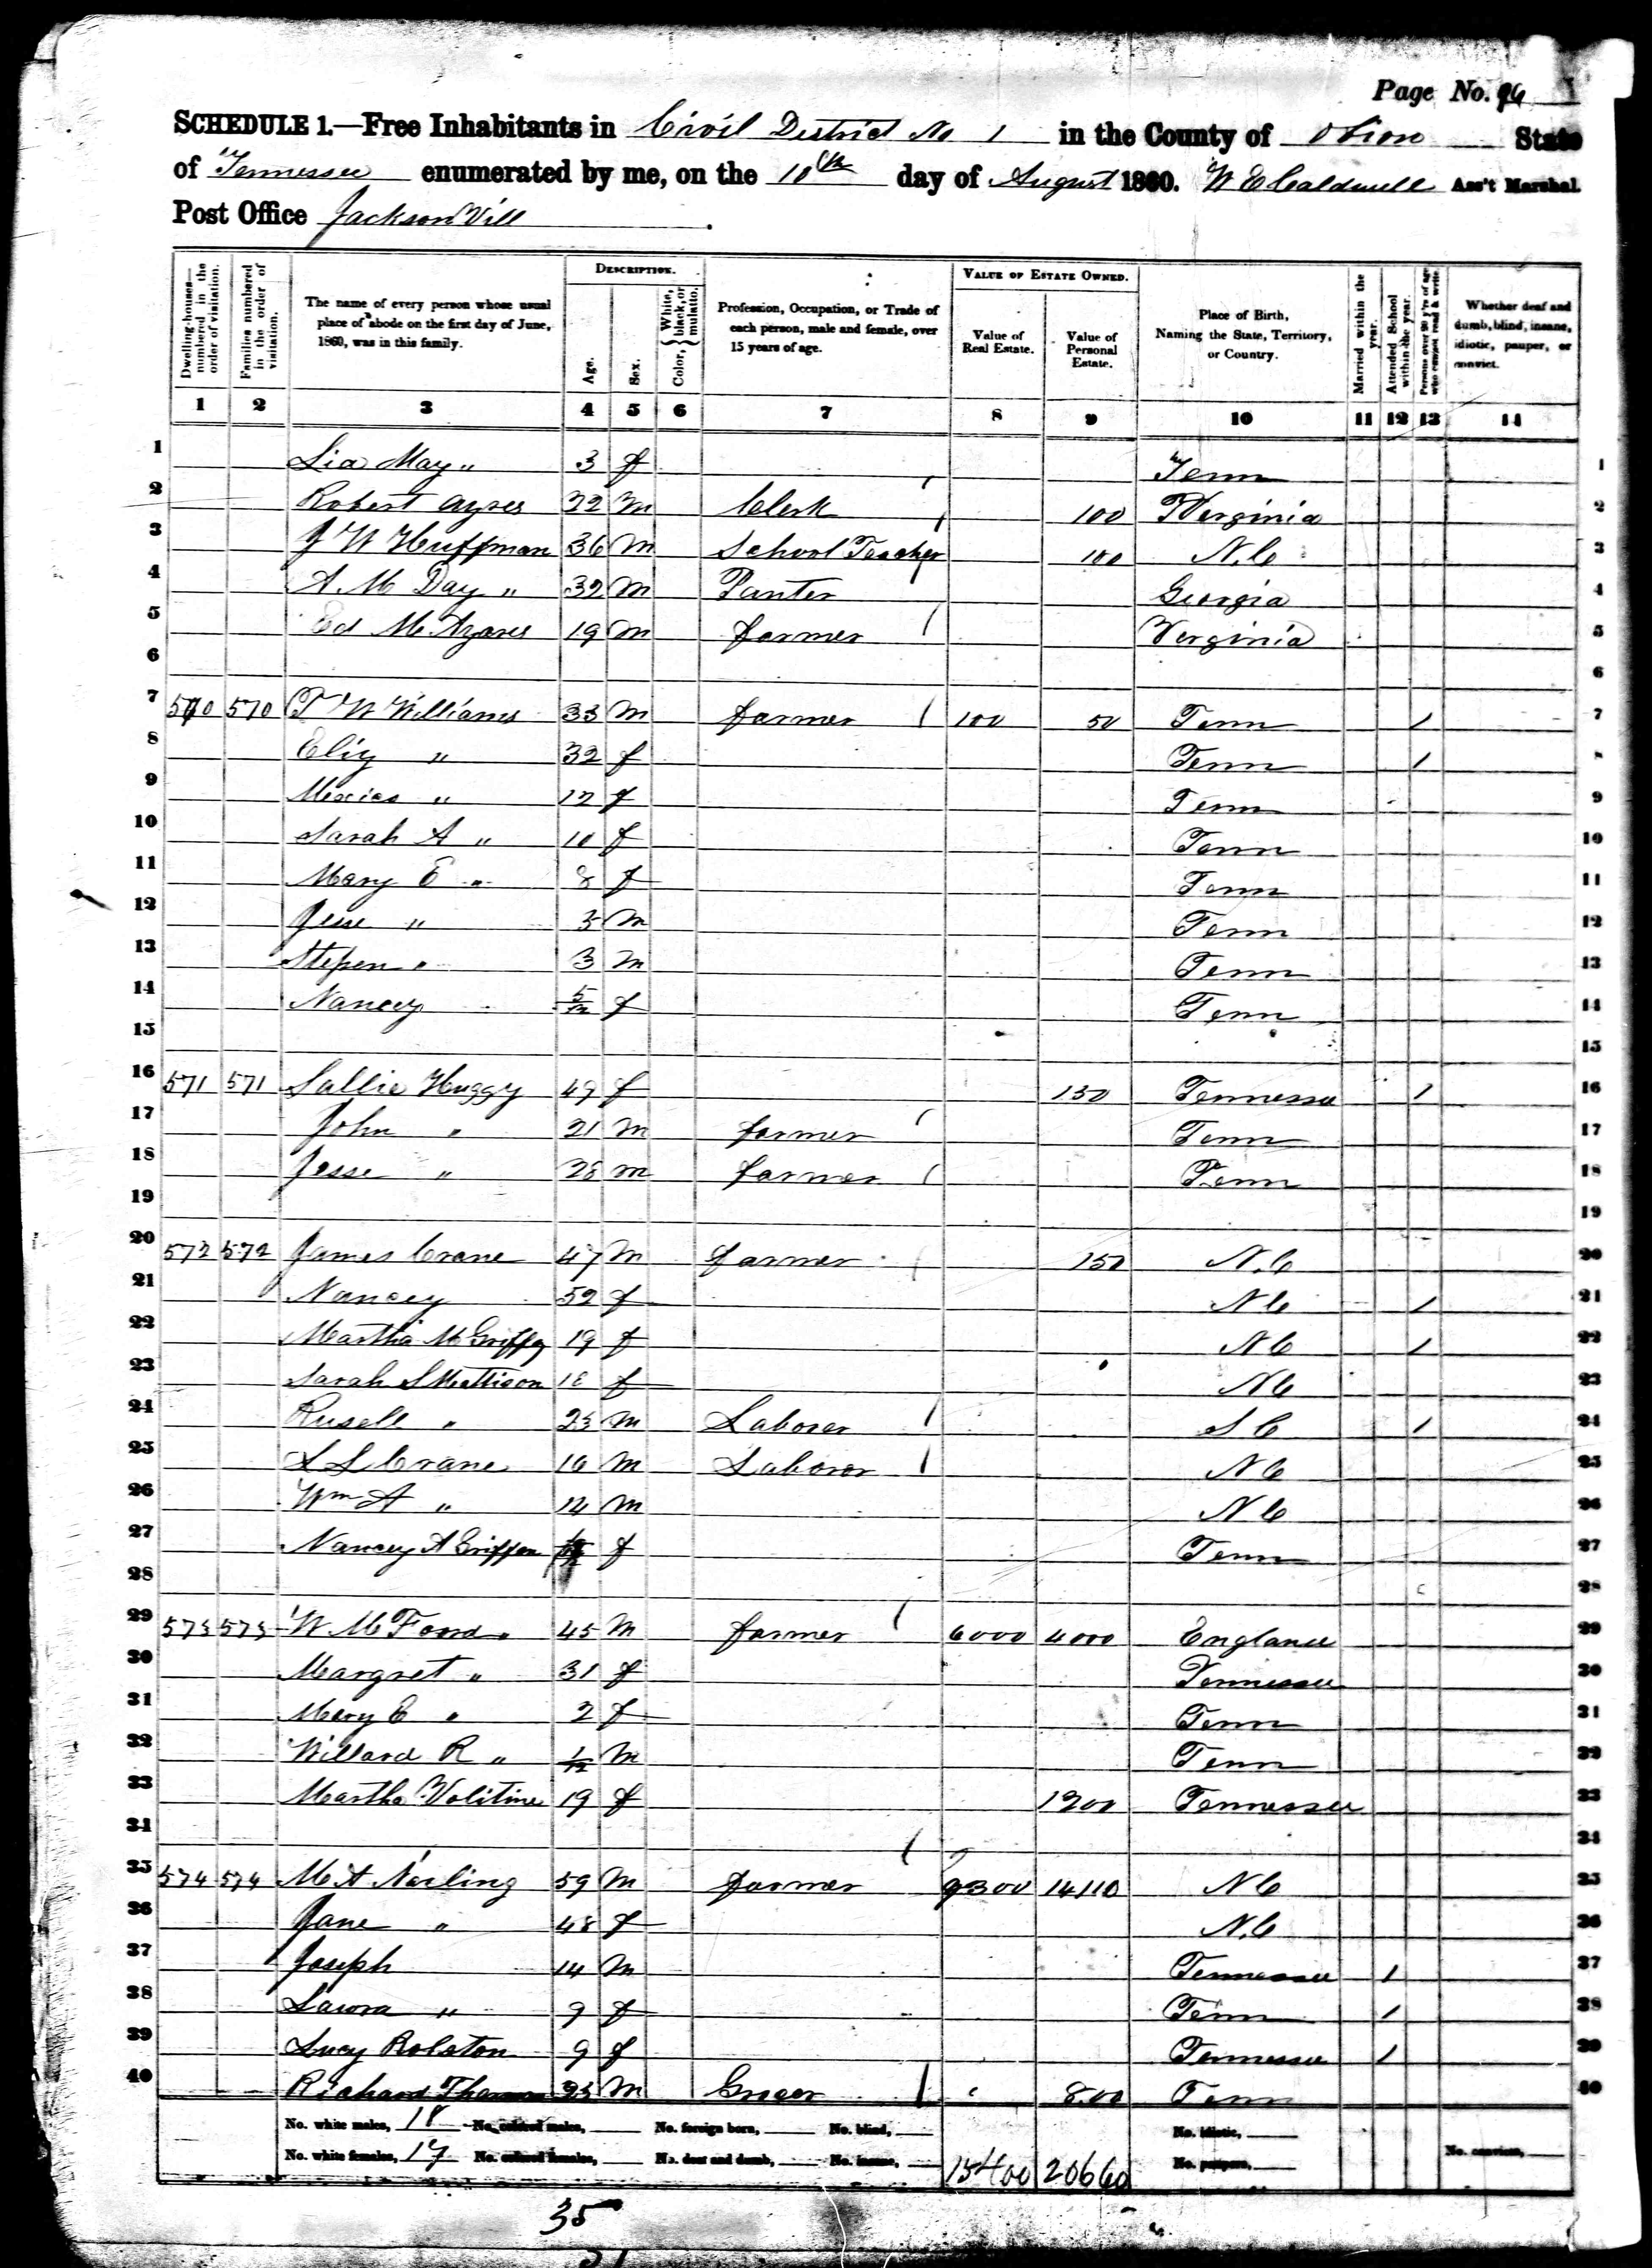 Page No. 96
SCHEDULE 1.—Free Inhabitants in Civil District No 1 in the County of Obion State
of Tennessee enumerated by me, on the 10th day of August 1860. W E Caldwell Ass't Marshal.
Post Office Jackson Vill
DESCRIPTION. VALUE OF ESTATE OWNED.
Dwelling-houses—numbered in the order of visitation. Families numbered in the order of visitation. The name of every person whose usual place of abode on the first day of June, 1860, was in this family. Age. Sex. Color, White, black, or mulatto. Profession, Occupation, or Trade of each person, male and female, over 15 years of age. Value of Real Estate. Value of Personal Estate. Place of Birth, Naming the State, Territory, or Country. Married within the year. Attended School within the year. Persons over 20 y'rs of age who cannot read & write. Whether deaf and dumb, blind, insane, idiotic, pauper, or convict.
1 2 3 4 5 6 7 8 9 10 11 12 13 14
1 May " 3 f Tenn 1
2 Robert Ayres 22 m Clerk 100 Virginia 2
3 J W Huffman 36 m School Teacher 100 N.C 3
4 A. M Day " 32 m Panter Georgia 4
5 Ed M 19 m farmer Verginia 5
6 6
7 570 570 T W Williams 33 m farmer 100 50 Tenn 1 7
8 Eliz " 32 f Tenn 1 8
9 " 12 f Tenn 9
10 Sarah A " 10 f Tenn 10
11 Mary E " 8 f Tenn 11
12 Jesse " 5 m Tenn 12
13 Stepen " 3 m Tenn 13
14 Nancy 5/12 f Tenn 14
15 15
16 571 571 Sallie Huggy 49 f 150 Tennessee 1 16
17 John " 21 m farmer Tenn 17
18 Jesse " 28 m farmer Tenn 18
19 19
20 572 572 James Crane 47 m farmer 150 N.C 20
21 Nancy 52 f N C 1 21
22 Martha M 19 f N C 1 22
23 Sarah S Mattison 18 f N C 23
24 Rusell " 23 m Laborer S C 1 24
25 S S Crane 16 m Laborer N C 25
26 Wm A " 14 m N C 26
27 Nancy A Griffen f Tenn 27
28 28
29 573 573 W M Ford " 45 m farmer 6000 4000 England 29
30 Margret " 31 f Tennessee 30
31 Mary E " 2 f Tenn 31
32 Willard R " 1/12 m Tenn 32
33 Martha Volitine 19 f 1200 Tennessee 33
34 34
35 574 574 M A Norling 59 m farmer 9300 14110 N C 35
36 Jane " 48 f N.C 36
37 Joseph 14 m Tennessee 1 37
38 Laura " 9 f Tenn 1 38
39 Lucy Rolston 9 f Tennessee 1 39
40 Richard 23 m Grocer 800 Tenn 40
No. white males, 18 No. colored males, No. foreign born, No. blind, No. idiotic,
No. white females, 17 No. colored females, No. deaf and dumb, No. insane, 15400 20660 No. paupers, No. convicts,
35